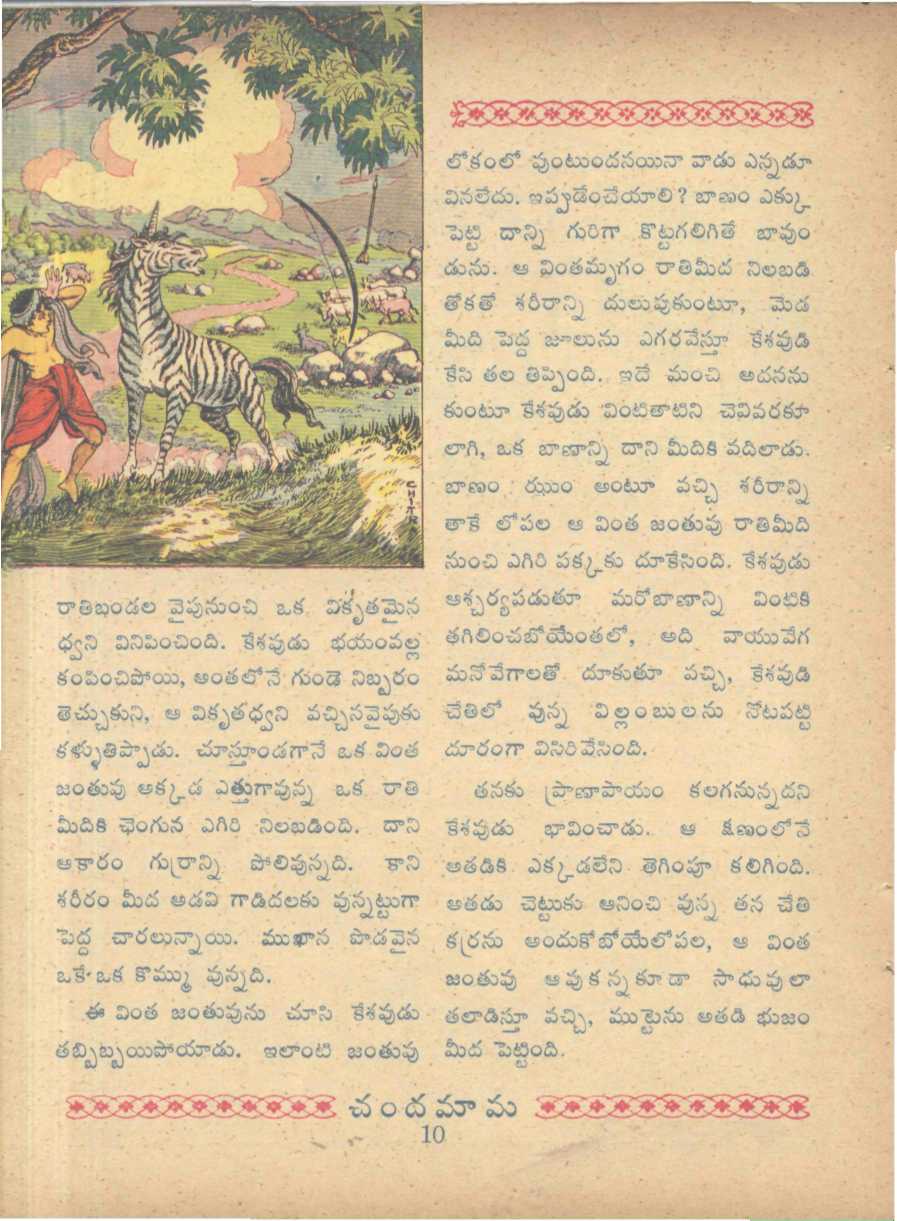 CHITRA
రాతిఖండల వైపునుంచి ఒక వికృతమైన
ధ్వని వినిపించింది. కేశవుడు భయంవల్ల
కంపించిపోయి, అంతలోనే గుండె నిబ్బరం
తెచ్చుకుని, ఆ వికృతధ్వని వచ్చినవైపుకు
కళ్ళుతిప్పాడు. చూస్తూండగానే ఒక వింత
జంతువు అక్కడ ఎత్తుగావున్న ఒక రాతి
మీదికి ఛెంగున ఎగిరి నిలబడింది. దాని
ఆకారం గుర్రాన్ని పోలివున్నది. కాని
శరీరం మీద అడవి గాడిదలకు వున్నట్టుగా
పెద్ద చారలున్నాయి. ముఖాన పొడవైన
ఒకే ఒక కొమ్ము వున్నది.
ఈ వింత జంతువును చూసి కేశవుడు
తబ్బిబ్బయిపోయాడు. ఇలాంటి జంతువు
లోకంలో వుంటుందనయినా వాడు ఎన్నడూ
వినలేదు. ఇప్పుడేంచేయాలి? బాణం ఎక్కు
పెట్టి దాన్ని గురిగా కొట్టగలిగితే బావుం
డును. ఆ వింతమృగం రాతిమీద నిలబడి
తోకతో శరీరాన్ని దులుపుకుంటూ, మెడ
మీది పెద్ద జూలును ఎగరవేస్తూ కేశవుడి
కేసి తల తిప్పింది. ఇదే మంచి అదనను
కుంటూ కేశవుడు వింటితాటిని చెవివరకూ
లాగి, ఒక బాణాన్ని దాని మీదికి వదిలాడు.
బాణం ఝుం అంటూ వచ్చి శరీరాన్ని
తాకే లోపల ఆ వింత జంతువు రాతిమీది
నుంచి ఎగిరి పక్కకు దూకేసింది. కేశవుడు
ఆశ్చర్యపడుతూ మరోబాణాన్ని వింటికి
తగిలించబోయేంతలో, అది వాయువేగ
మనోవేగాలతో దూకుతూ వచ్చి, కేశవుడి
చేతిలో వున్న విల్లంబులను నోటపట్టి
దూరంగా విసిరివేసింది.
తనకు ప్రాణాపాయం కలగనున్నదని
కేశవుడు భావించాడు. ఆ క్షణంలోనే
అతడికి ఎక్కడలేని తెగింపూ కలిగింది.
అతడు చెట్టుకు ఆనించి వున్న తన చేతి
కర్రను అందుకోబోయేలోపల, ఆ వింత
జంతువు ఆవుకన్నకూడా సాధువులా
తలాడిస్తూ వచ్చి, ముట్టెను అతడి భుజం
మీద పెట్టింది.
చందమామ
10